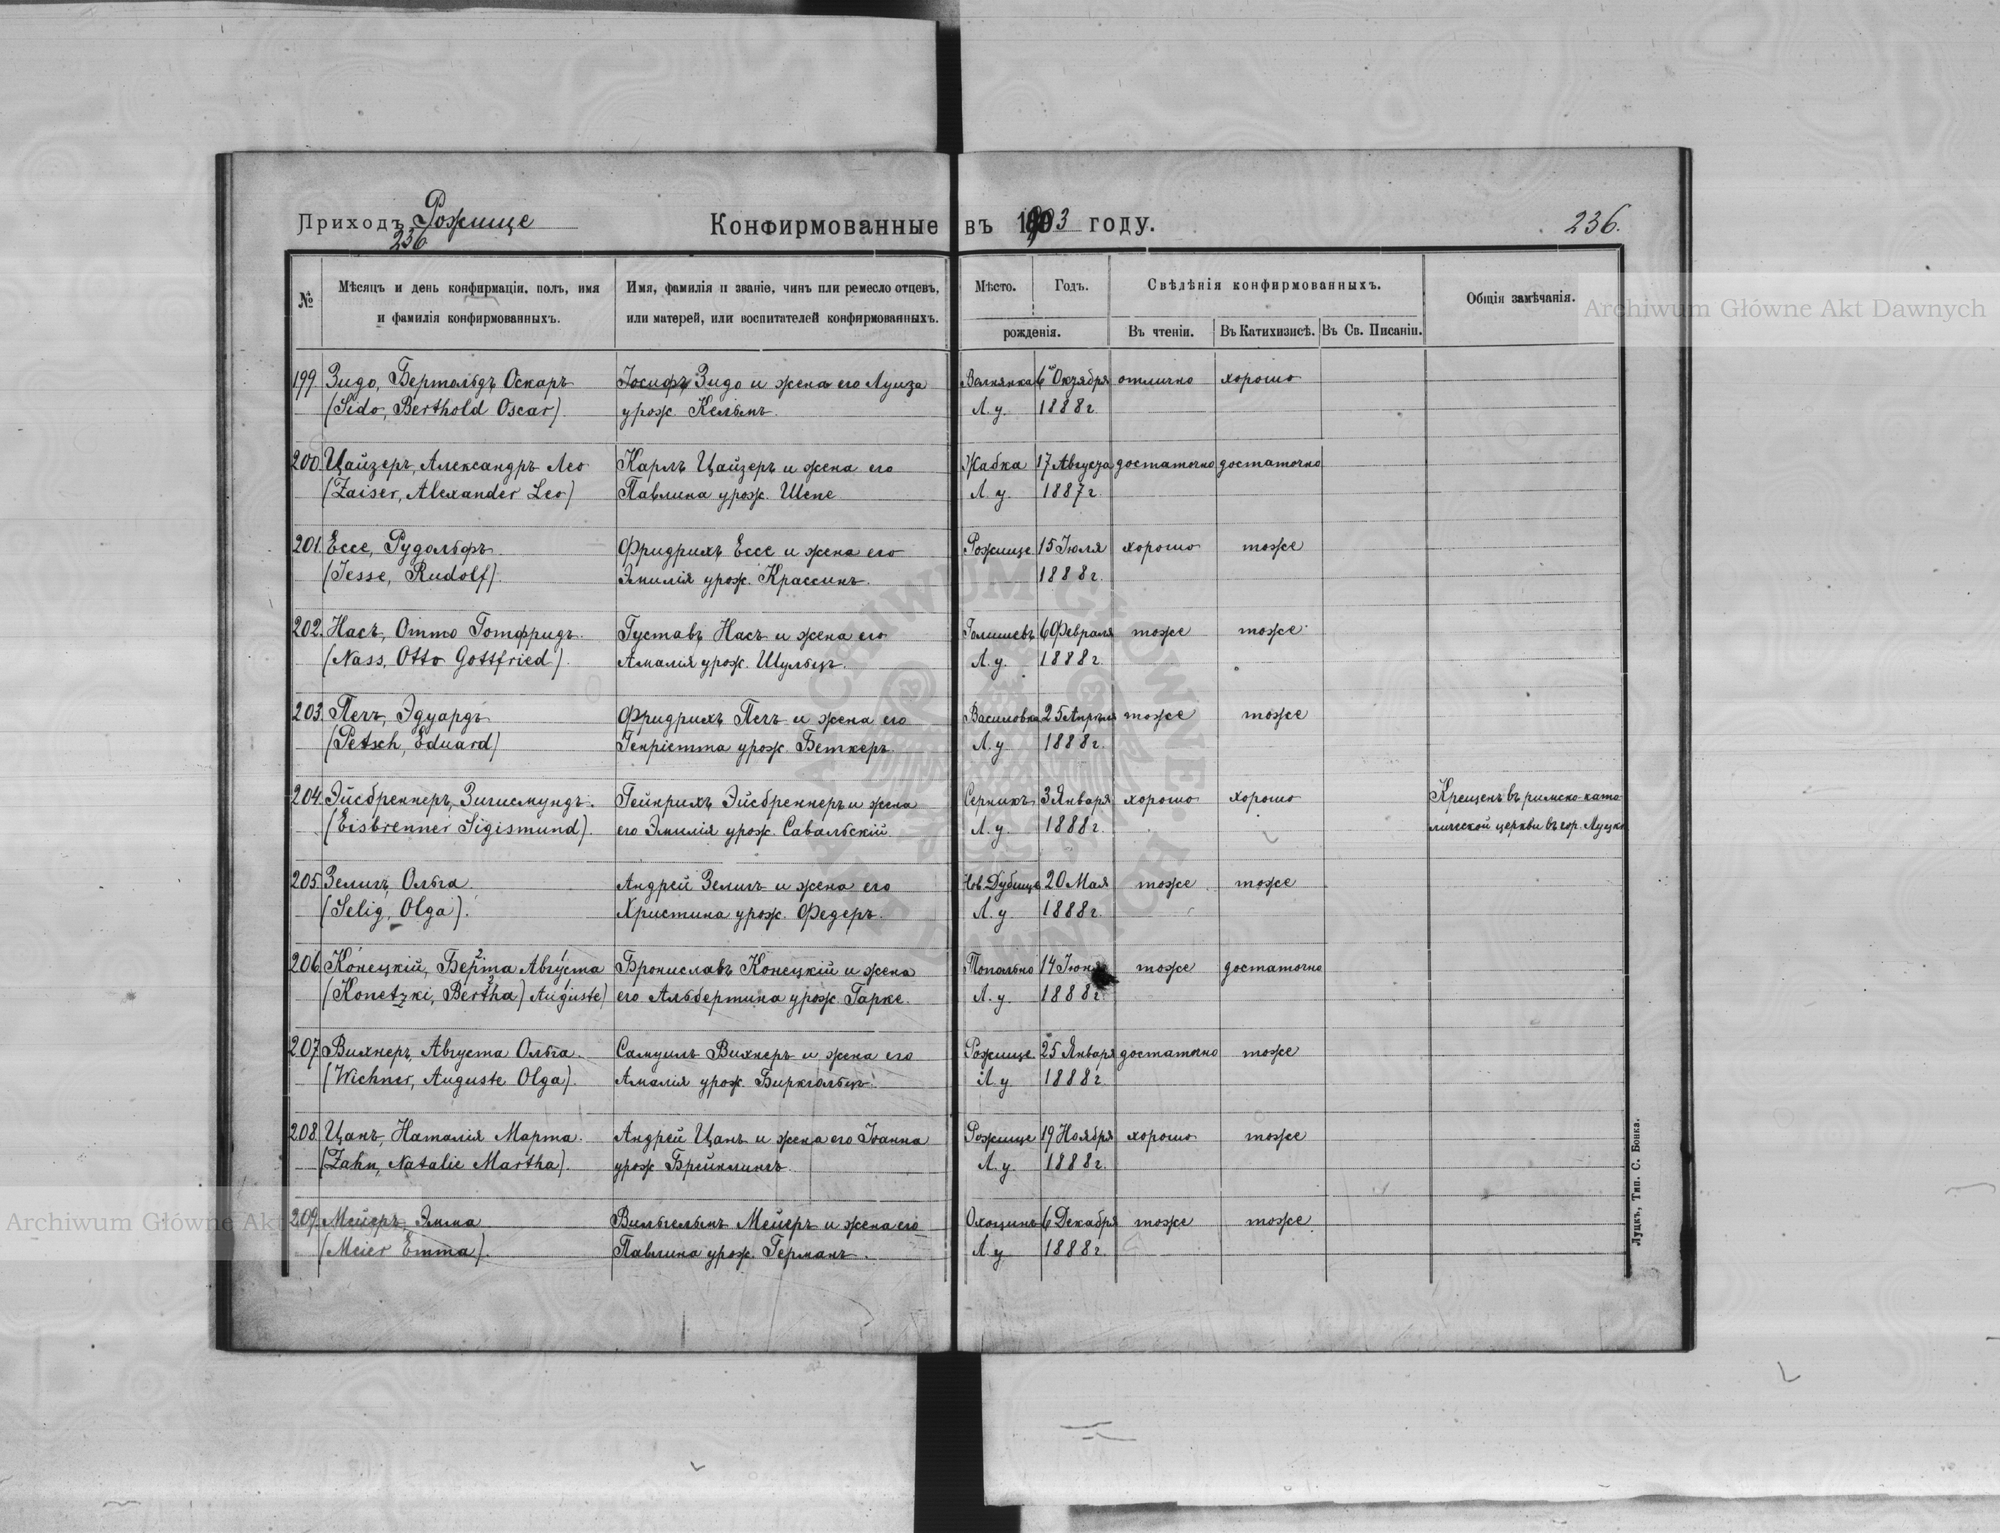 Приходъ Рожище
236
Конфирмованные въ 1903 году.
236.
№
Мѣсяцъ и день конфирмаціи, полъ, имя
и фамилія конфирмованныхъ.
Имя, фамилія и званіе, чинъ или ремесло отцевъ,
или матерей, или воспитателей конфирмованныхъ.
Мѣсто.
Годъ.
рожденія.
Свѣдѣнія конфирмованныхъ.
Въ чтеніи.
Въ Катихизисѣ.
Въ Св. Писаніи.
Общія замѣчанія.
199. Зидо, Бертольдъ Оскаръ Іосифъ Зидо и жена его Луиза Волнянка 6го Октября отлично хорошо
(Sido, Berthold Oscar). урож. Кельмъ. Л. у. 1888 г.
200. Цайзеръ, Александръ Лео Карлъ Цайзеръ и жена его Жабка 17 Августа достаточно достаточно
(Zaiser, Alexander Leo) Павлина урож. Шепе Л. у. 1887 г.
201. Ессе, Рудольфъ Фридрихъ Ессе и жена его Рожище 15 Іюля хорошо тоже
(Jesse, Rudolf). Эмилія урож. Крассинъ. 1888 г.
202. Насъ, Отто Готфридъ. Густавъ Насъ и жена его Голишевъ 6 Февраля тоже тоже
(Nass, Otto Gottfried). Амалія урож. Шульцъ. Л. у. 1888 г.
203. Печъ, Эдуардъ Фридрихъ Печъ и жена его Василовка 25 Апрѣля тоже тоже
(Petsch, Eduard) Генріетта урож. Беткеръ. Л. у. 1888 г.
204. Эйсбреннеръ, Зигисмундъ. Гейнрихъ Эйсбреннеръ и жена Серникъ 3 Января хорошо хорошо Крещенъ въ римско-като-
(Eisbrenner Sigismund). его Эмилія урож. Савальскій. Л. у. 1888 г. лической церкви въ гор. Луцкѣ
205. Зелигъ, Ольга. Андрей Зелигъ и жена его Нов. Дубище 20 Мая тоже тоже
(Selig, Olga). Христина урож. Федеръ. Л. у. 1888 г.
206. Конецкій, Берта Августа Брониславъ Конецкій и жена Топольно 14 Іюня тоже достаточно
(Konetzki, Bertha) Auguste) его Альбертина урож. Гарке. Л. у. 1888 г.
207. Вихнеръ, Августа Ольга. Самуилъ Вихнеръ и жена его Рожище 25 Января достаточно тоже
(Wichner, Auguste Olga). Амалія урож. Биркгольцъ. Л. у. 1888 г.
208. Цанъ, Наталія Марта. Андрей Цанъ и жена его Іоанна Рожище 19 Ноября хорошо тоже
(Zahn, Natalie Martha). урож. Брейклингъ. Л. у. 1888 г.
209. Мейеръ, Эмма Вильгельмъ Мейеръ и жена его Охоцинъ 6 Декабря тоже тоже
(Meier Emma). Павлина урож. Германъ. Л. у. 1888 г.
Луцкъ, Тип. С. Бонка.
Archiwum Główne Akt Dawnych
Archiwum Główne Akt
ARCHIWUM GŁÓWNE AKT DAWNYCH